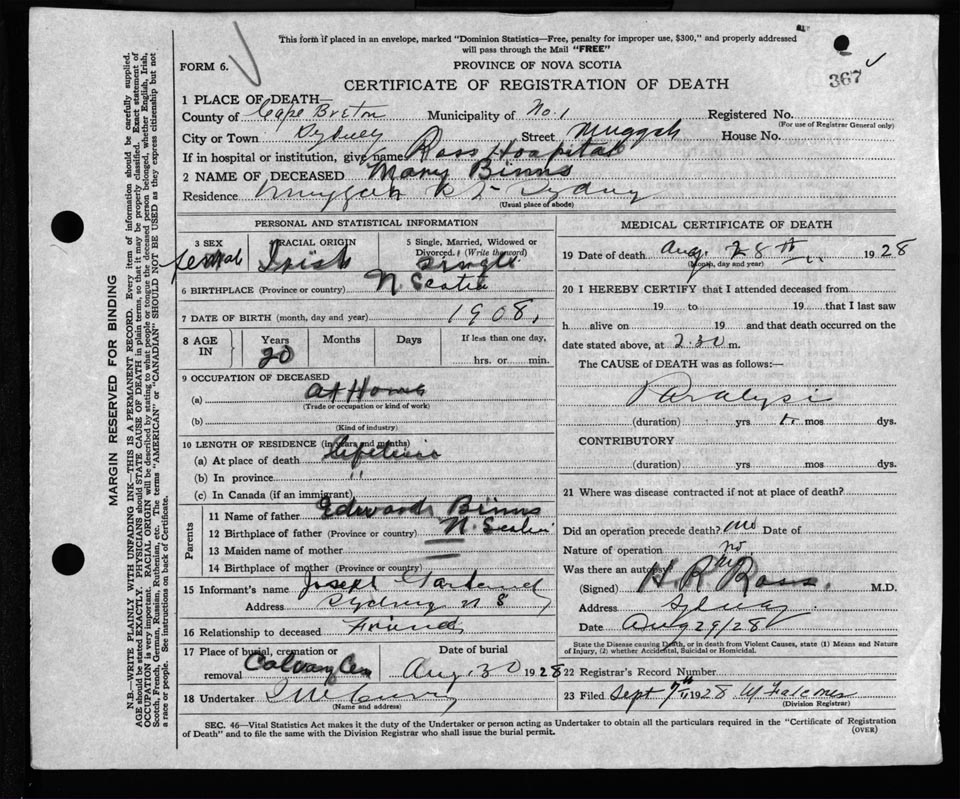 This form if placed in an envelope, marked "Dominion Statistics—Free, penalty for improper use, $300," and properly addressed
will pass through the Mail "FREE"
FORM 6.
PROVINCE OF NOVA SCOTIA
367
CERTIFICATE OF REGISTRATION OF DEATH
1 PLACE OF DEATH—
County of Cape Breton Municipality of No. 1 Registered No.
(For use of Registrar General only)
City or Town Sydney Street Muggah House No.
If in hospital or institution, give name Ross Hospital
2 NAME OF DECEASED Mary Binns
Residence Muggah St Sydney
(Usual place of abode)
PERSONAL AND STATISTICAL INFORMATION
3 SEX
Female
4 RACIAL ORIGIN
Irish
5 Single, Married, Widowed or
Divorced. (Write the word)
Single
6 BIRTHPLACE (Province or country) N. Scotia
7 DATE OF BIRTH (month, day and year) 1908
8 AGE IN
Years Months Days If less than one day,
20 hrs. or min.
9 OCCUPATION OF DECEASED
(a) At Home
(Trade or occupation or kind of work)
(b)
(Kind of industry)
10 LENGTH OF RESIDENCE (in years and months)
(a) At place of death lifetime
(b) In province "
(c) In Canada (if an immigrant)
Parents
11 Name of father Edward Binns
12 Birthplace of father (Province or country) N. Scotia
13 Maiden name of mother
14 Birthplace of mother (Province or country)
15 Informant's name Joseph
Address Sydney N S
16 Relationship to deceased Friend
17 Place of burial, cremation or removal Calvary Cem
Date of burial
Aug. 30 1928
18 Undertaker
(Name and address)
MEDICAL CERTIFICATE OF DEATH
19 Date of death Aug. 28th 1928
(Month, day and year)
20 I HEREBY CERTIFY that I attended deceased from
19 to 19 that I last saw
h alive on 19 and that death occurred on the
date stated above, at 2:30 m.
The CAUSE OF DEATH was as follows:—
Paralysis
(duration) yrs mos dys.
CONTRIBUTORY
(duration) yrs mos dys.
21 Where was disease contracted if not at place of death?
Did an operation precede death? no Date of
Nature of operation
Was there an autopsy? no
(Signed) H. R. Ross. M.D.
Address Sydney
Date Aug 29/28
State the Disease causing Death, or in death from Violent Causes, state (1) Means and Nature
of Injury, (2) whether Accidental, Suicidal or Homicidal.
22 Registrar's Record Number
23 Filed Sept 7th 1928
(Division Registrar)
SEC. 46—Vital Statistics Act makes it the duty of the Undertaker or person acting as Undertaker to obtain all the particulars required in the "Certificate of Registration
of Death" and to file the same with the Division Registrar who shall issue the burial permit.
(OVER)
MARGIN RESERVED FOR BINDING
N.B.—WRITE PLAINLY WITH UNFADING INK—THIS IS A PERMANENT RECORD. Every item of information should be carefully supplied.
AGE should be stated EXACTLY. PHYSICIANS should STATE CAUSE OF DEATH in plain terms, so that it may be properly classified. Exact statement of
OCCUPATION is very important. RACIAL ORIGIN will be described by stating to what people or tongue the deceased person belonged, whether English, Irish,
Scotch, French, German, Russian, Ruthenian, etc. The terms "AMERICAN" or "CANADIAN" SHOULD NOT BE USED as they express citizenship but not
a race or people. See instructions on back of Certificate.